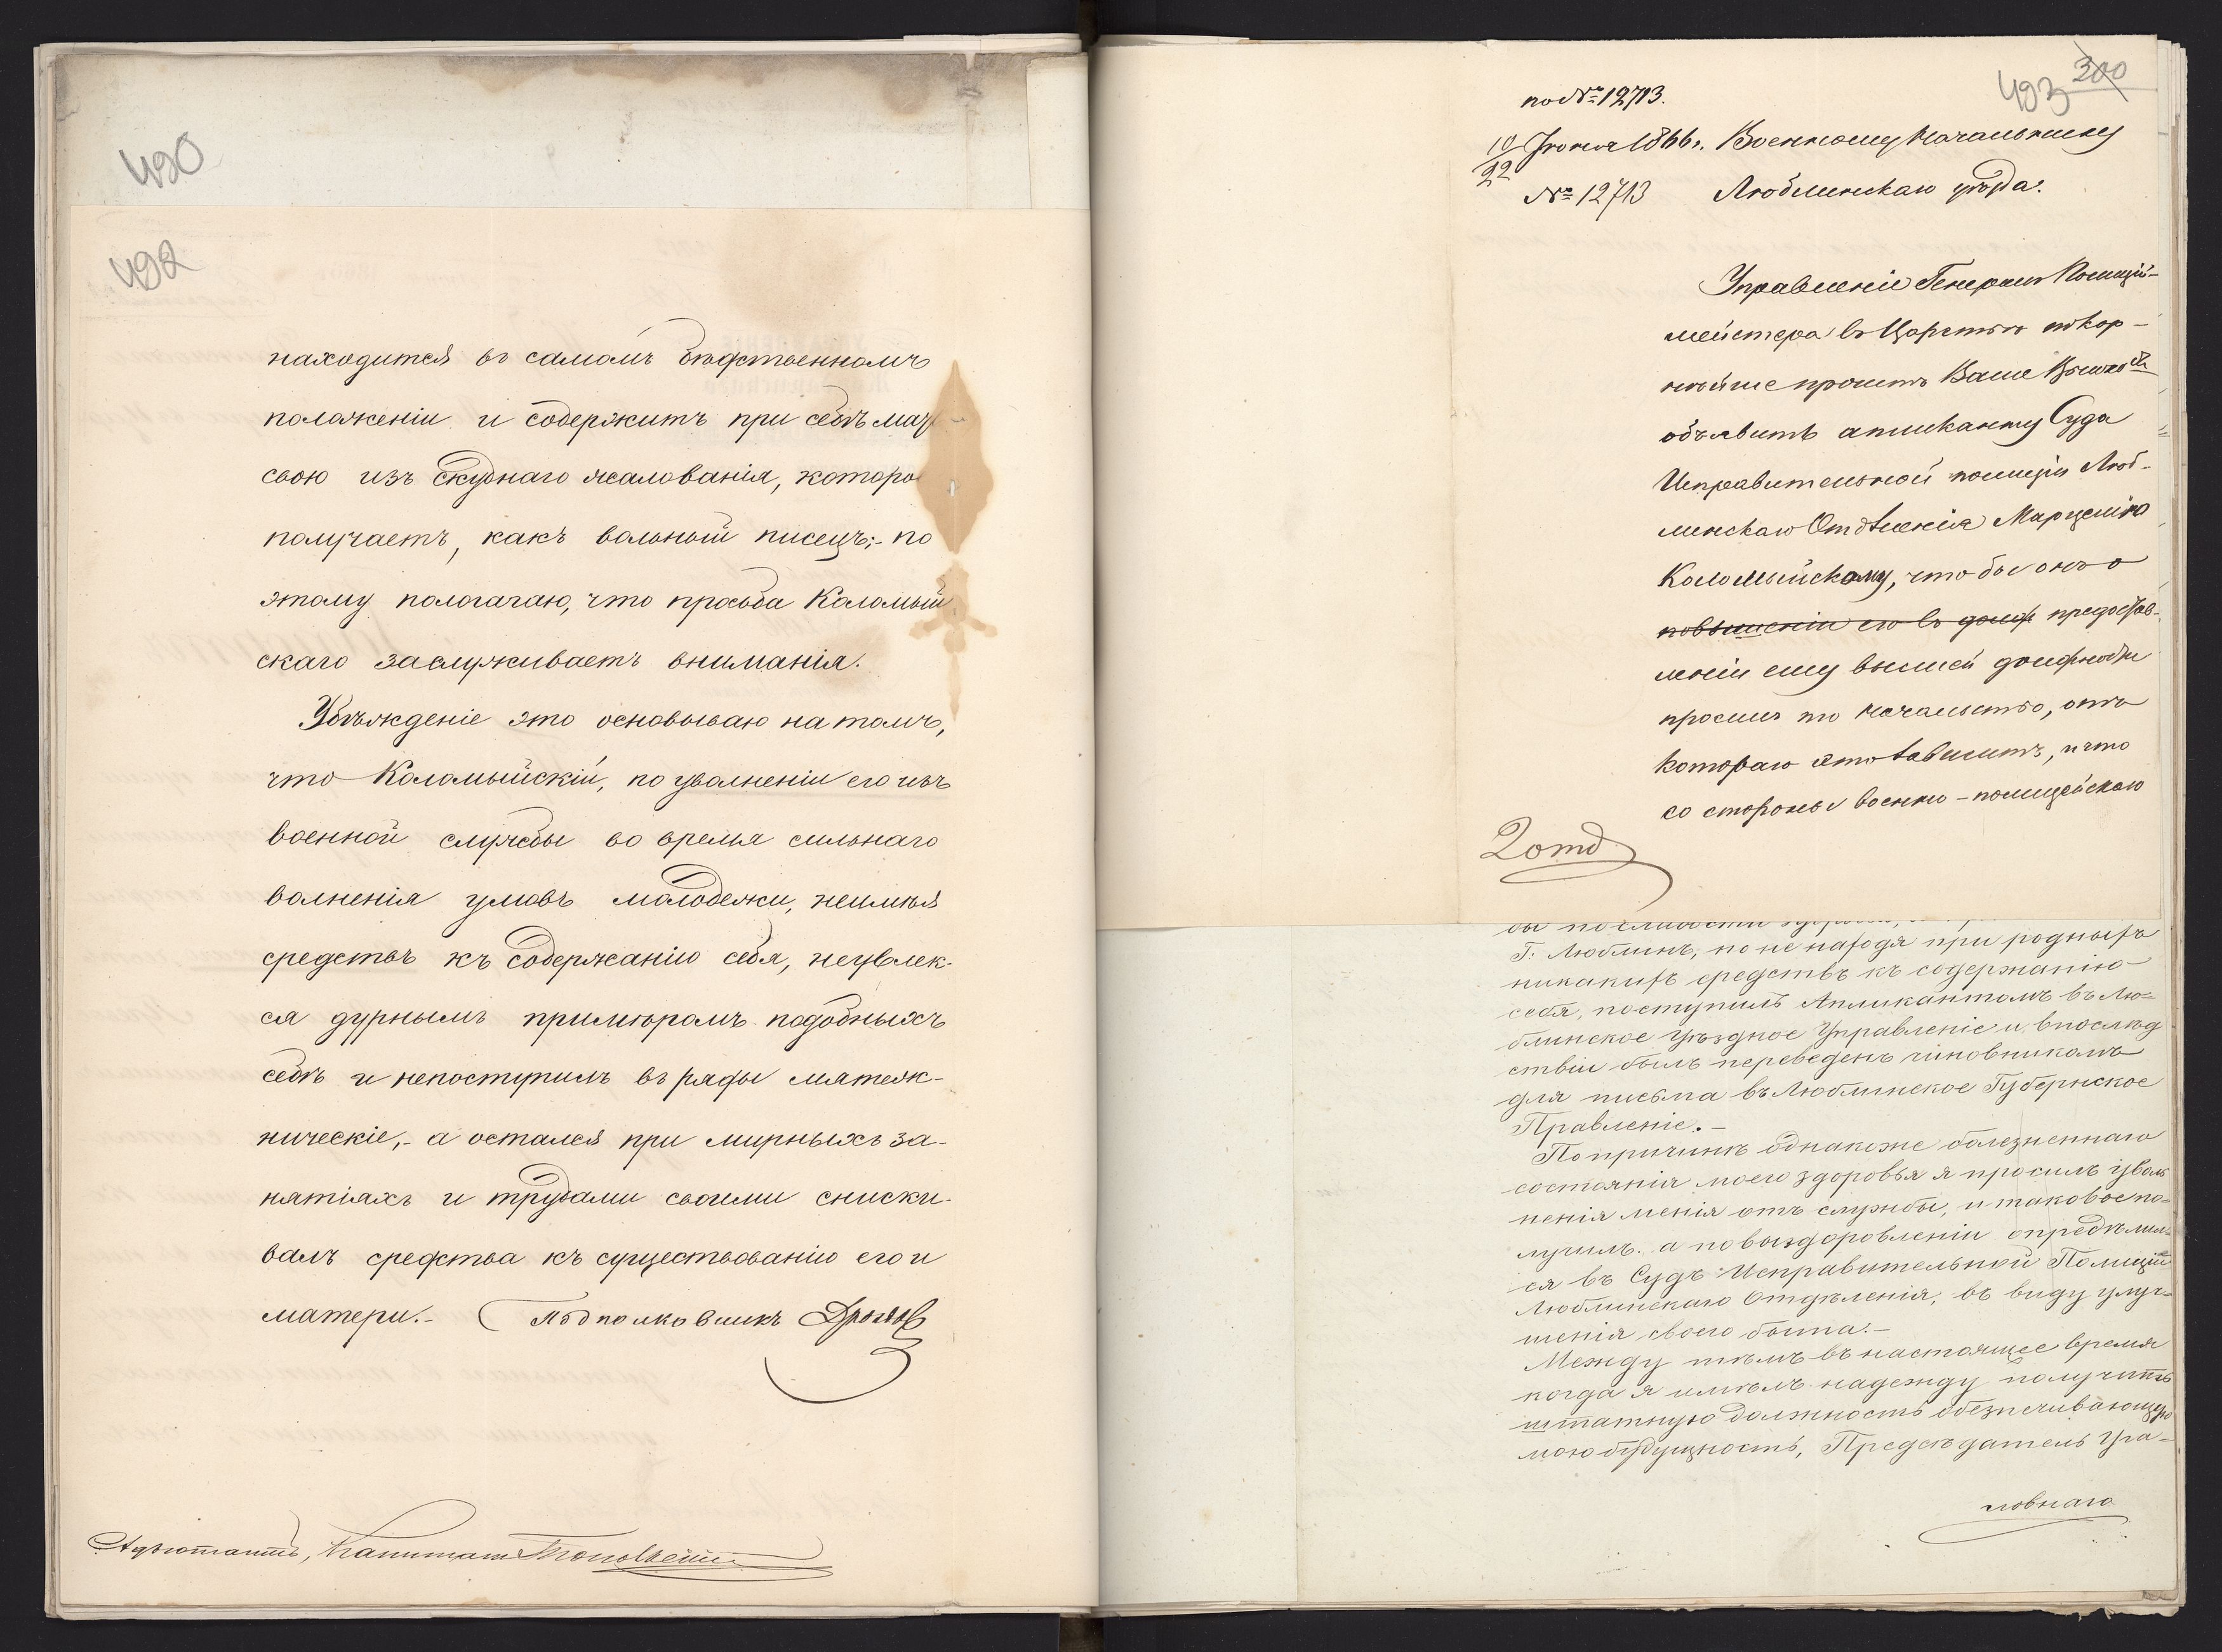 490
492
находится въ самомъ бѣдственномъ
положеніи и содержитъ при себѣ мать
свою изъ скуднаго жалованія, которо
получаетъ, какъ вольный писецъ;- по
этому пологагаю, что просьба Коломый
скаго заслуживаетъ вниманія.
Убѣжденіе это основываю на томъ,
что Коломыйскій, по увольненіи его изъ
военной службы во время сильнаго
волненія умовъ молодежи, неимѣя
средствъ къ содержанію себя, неувлек-
ся дурнымъ примѣромъ подобныхъ
себѣ и непоступилъ въ ряды мятеж-
ническіе,- а остался при мирныхъ за-
нятіяхъ и трудами своими сниски-
валъ средства къ существованію его и
матери.- Подполковникъ
Адъютантъ, Капитанъ
493 300
по № 12713.
10/22 Іюня 1866 г. Военному Начальнику
№ 12713 Люблинскаго уѣзда.
Управленіе Генералъ Полицій-
мейстера въ Царствѣ покор-
нѣйше проситъ Ваше Высокобл
объявить апликанту Суда
Исправительной полиціи Люб-
линскаго Отдѣленія Марцелію
Коломыйскому, что бы онъ о
повышеніи его въ долж предостав-
леніи ему высшей должности
просилъ то начальство, отъ
котораго это зависитъ, и что
со стороны военно-полицейскаго
2 отд
Г. Люблинъ, но не находя при родныхъ
никакихъ средствъ къ содержанію
себя, поступилъ Апликантомъ въ Лю=
блинское Уѣздное Управленіе и впослѣд
ствіи былъ переведенъ чиновникомъ
для письма въ Люблинское Губернское
Правленіе.-
По причинѣ однакоже болезненнаго
состоянія моего здоровья я просилъ уволь
ненія меня отъ службы, и таковое по=
лучилъ. а по выздоровленіи опредѣлил-
ся въ Судъ Исправительной Полиціи
Люблинскаго Отдѣленія, въ виду улуч=
шенія своего быта.-
Между тѣмъ въ настоящее время
когда я имѣлъ надежду получить
штатную должность обезпечивающую
мою будущность, Председатель Уга=
ловнаго